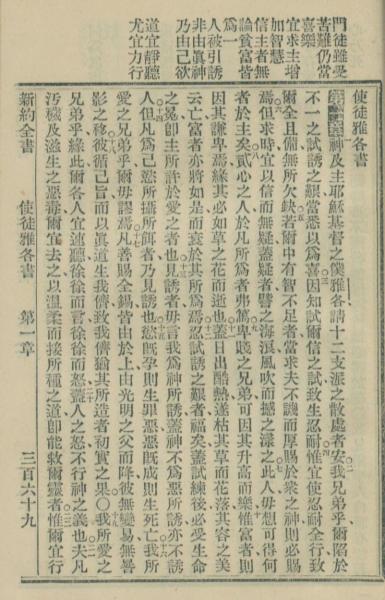 門徒雖受
苦難仍當
喜樂
宜求主增
加智慧
信主者無
論貧富皆
爲一
人被引誘
非由眞神
乃由己欲
道宜靜聽
尤宜力行
使徒雅各書
神及主耶穌基督之僕雅各請十二支派之散處者安我兄弟乎爾陷於
不一之試誘之艱當悉以爲喜因知試爾信之試政生忍耐惟宜使忍耐全行致
爾全且備無所欠缺若爾中有智不足者當求夫不譏而厚賜於衆之神則必賜
焉但求時宜以信而無疑蓋疑者譬之海浪風吹而撼之漾之此人毋想可得何
者於主矣貳心之人於凡所爲者弗篤卑賤之兄弟可因其升高而樂惟富者則
因其謙卑焉緣其必如草之花而逝也蓋日出酷熱遂枯其草而花落其容之美
云亡富者亦將如是而衰於其所爲焉忍試誘之艱者福矣蓋試練後必受生命
之冕卽主所許於愛之者也見誘者毋言我爲神所誘蓋神不爲惡所誘亦不誘
人但凡爲己慾所攝所餌者乃見誘也慾既孕則生罪惡惡既成則生死亡我所
愛之兄弟乎爾毋謬焉凡善賜全錫皆由於上由光明之父而降彼無變易無晷
影之移彼循己旨而以眞道生我儕致我儕猶其所造者初實之果○我所愛之
兄弟乎緣此爾各人宜速聽徐徐而言徐徐而怒蓋人之怒不行神之義也夫凡
污穢及滋生之惡毒爾宜去之以溫柔而接所種之道卽能救爾靈者惟爾宜行
新約全書 使徒雅各書 第一章 三百六十九